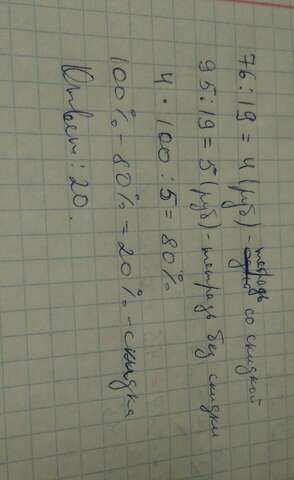 76 : 19 = 4 (руб) - тетрадь со скидкой
95 : 19 = 5 (руб) - тетрадь без скидки
4 · 100 : 5 = 80%
100% - 80% = 20% - скидка
Ответ: 20.